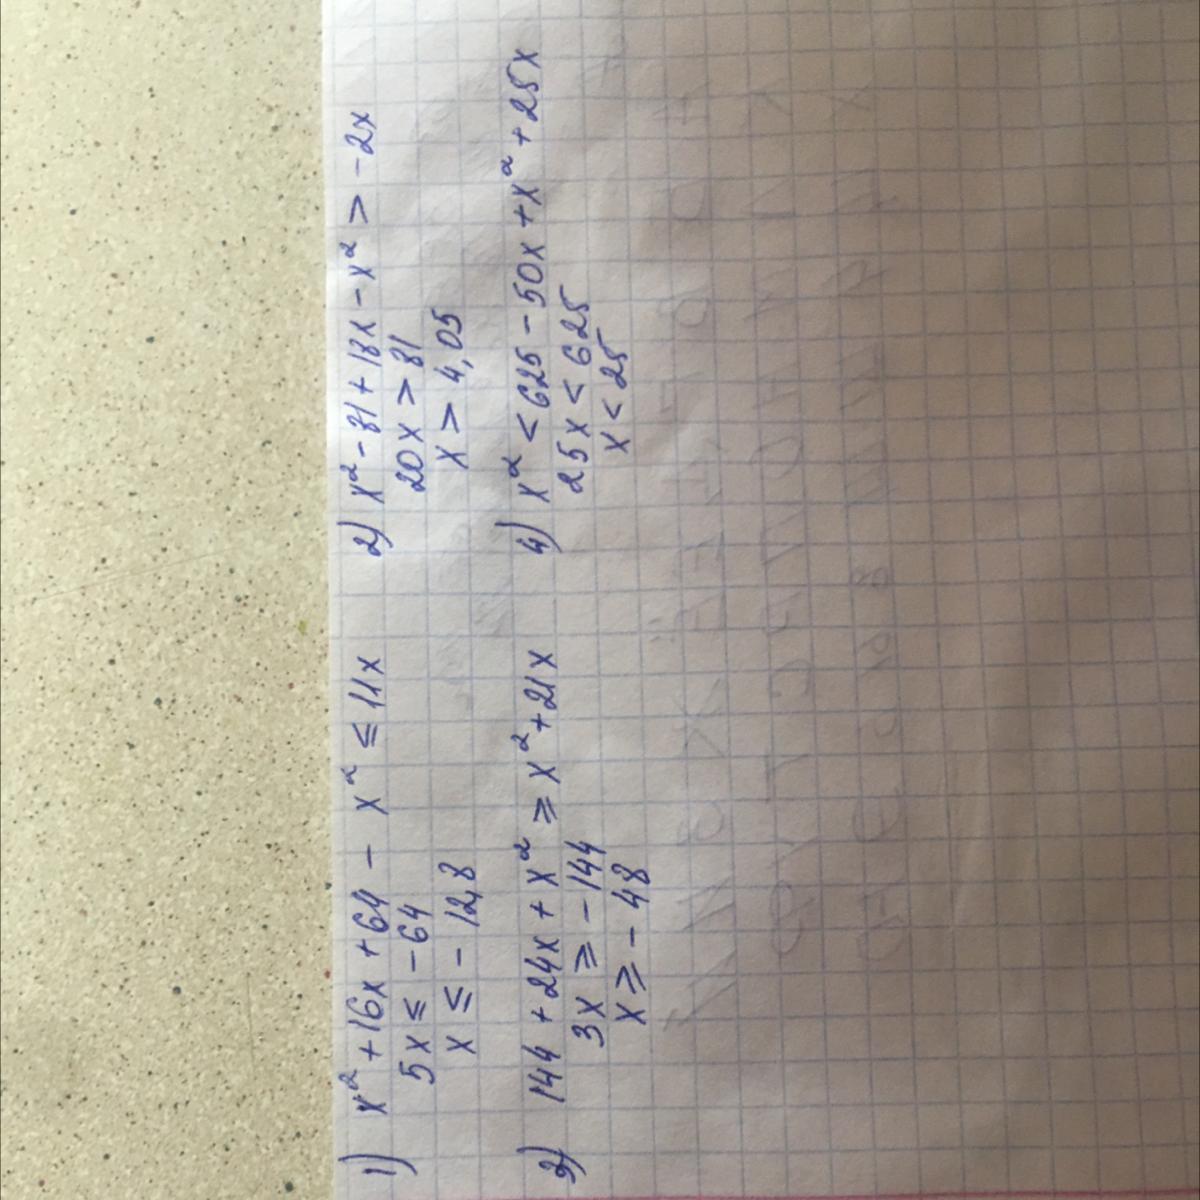 1) x² + 16x + 64 - x² ≤ 11x
5x ≤ -64
x ≤ -12,8
2) x² - 81 + 18x - x² > -2x
20x > 81
x > 4,05
3) 144 + 24x + x² ≥ x² + 21x
3x ≥ -144
x ≥ -48
4) x² < 625 - 50x + x² + 25x
25x < 625
x < 25